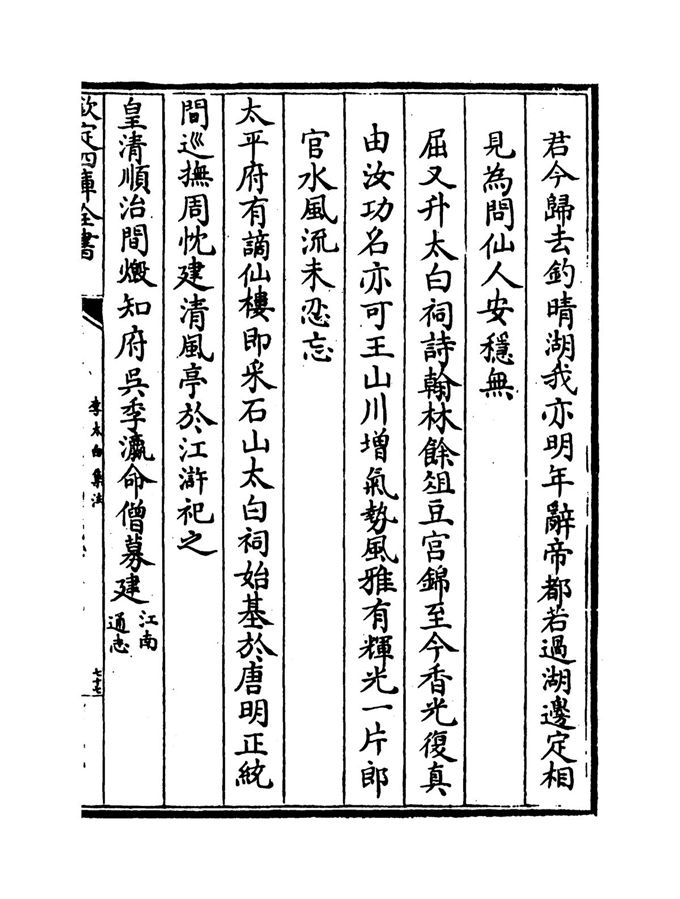 君今歸去釣晴湖我亦明年辭帝都若過湖邊定相
見為問仙人安穩無
屈又升太白祠詩翰林餘俎豆宫錦至今香光復真
由汝功名亦可王山川增氣勢風雅有輝光一片郎
官水風流未忍忘
太平府有謫仙樓即采石山太白祠始基於唐明正統
間巡撫周忱建清風亭於江滸祀之
皇清順治間燬知府吳季瀛命僧募建江南
通志
欽定四庫全書
李太白集注
七十七